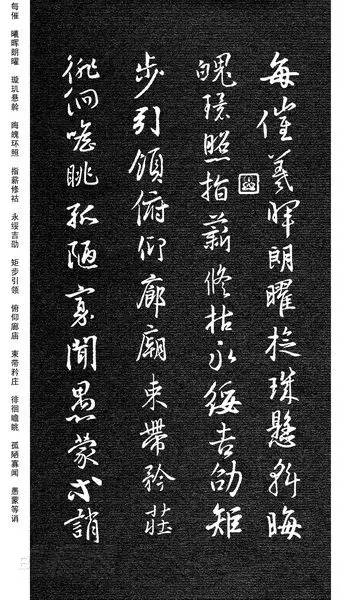 每催羲暉朗曜珠懸斡晦
魄環照指薪修祜永綏吉劭矩
步引領俯仰廊廟束帶矜莊
徘徊瞻眺孤陋寡聞愚蒙等誚
每催 曦晖朗曜 璇玑悬斡 晦魄环照 指薪修祜 永绥吉劭 矩步引领 俯仰廊庙 束带矜庄 徘徊瞻眺 孤陋寡闻 愚蒙等诮